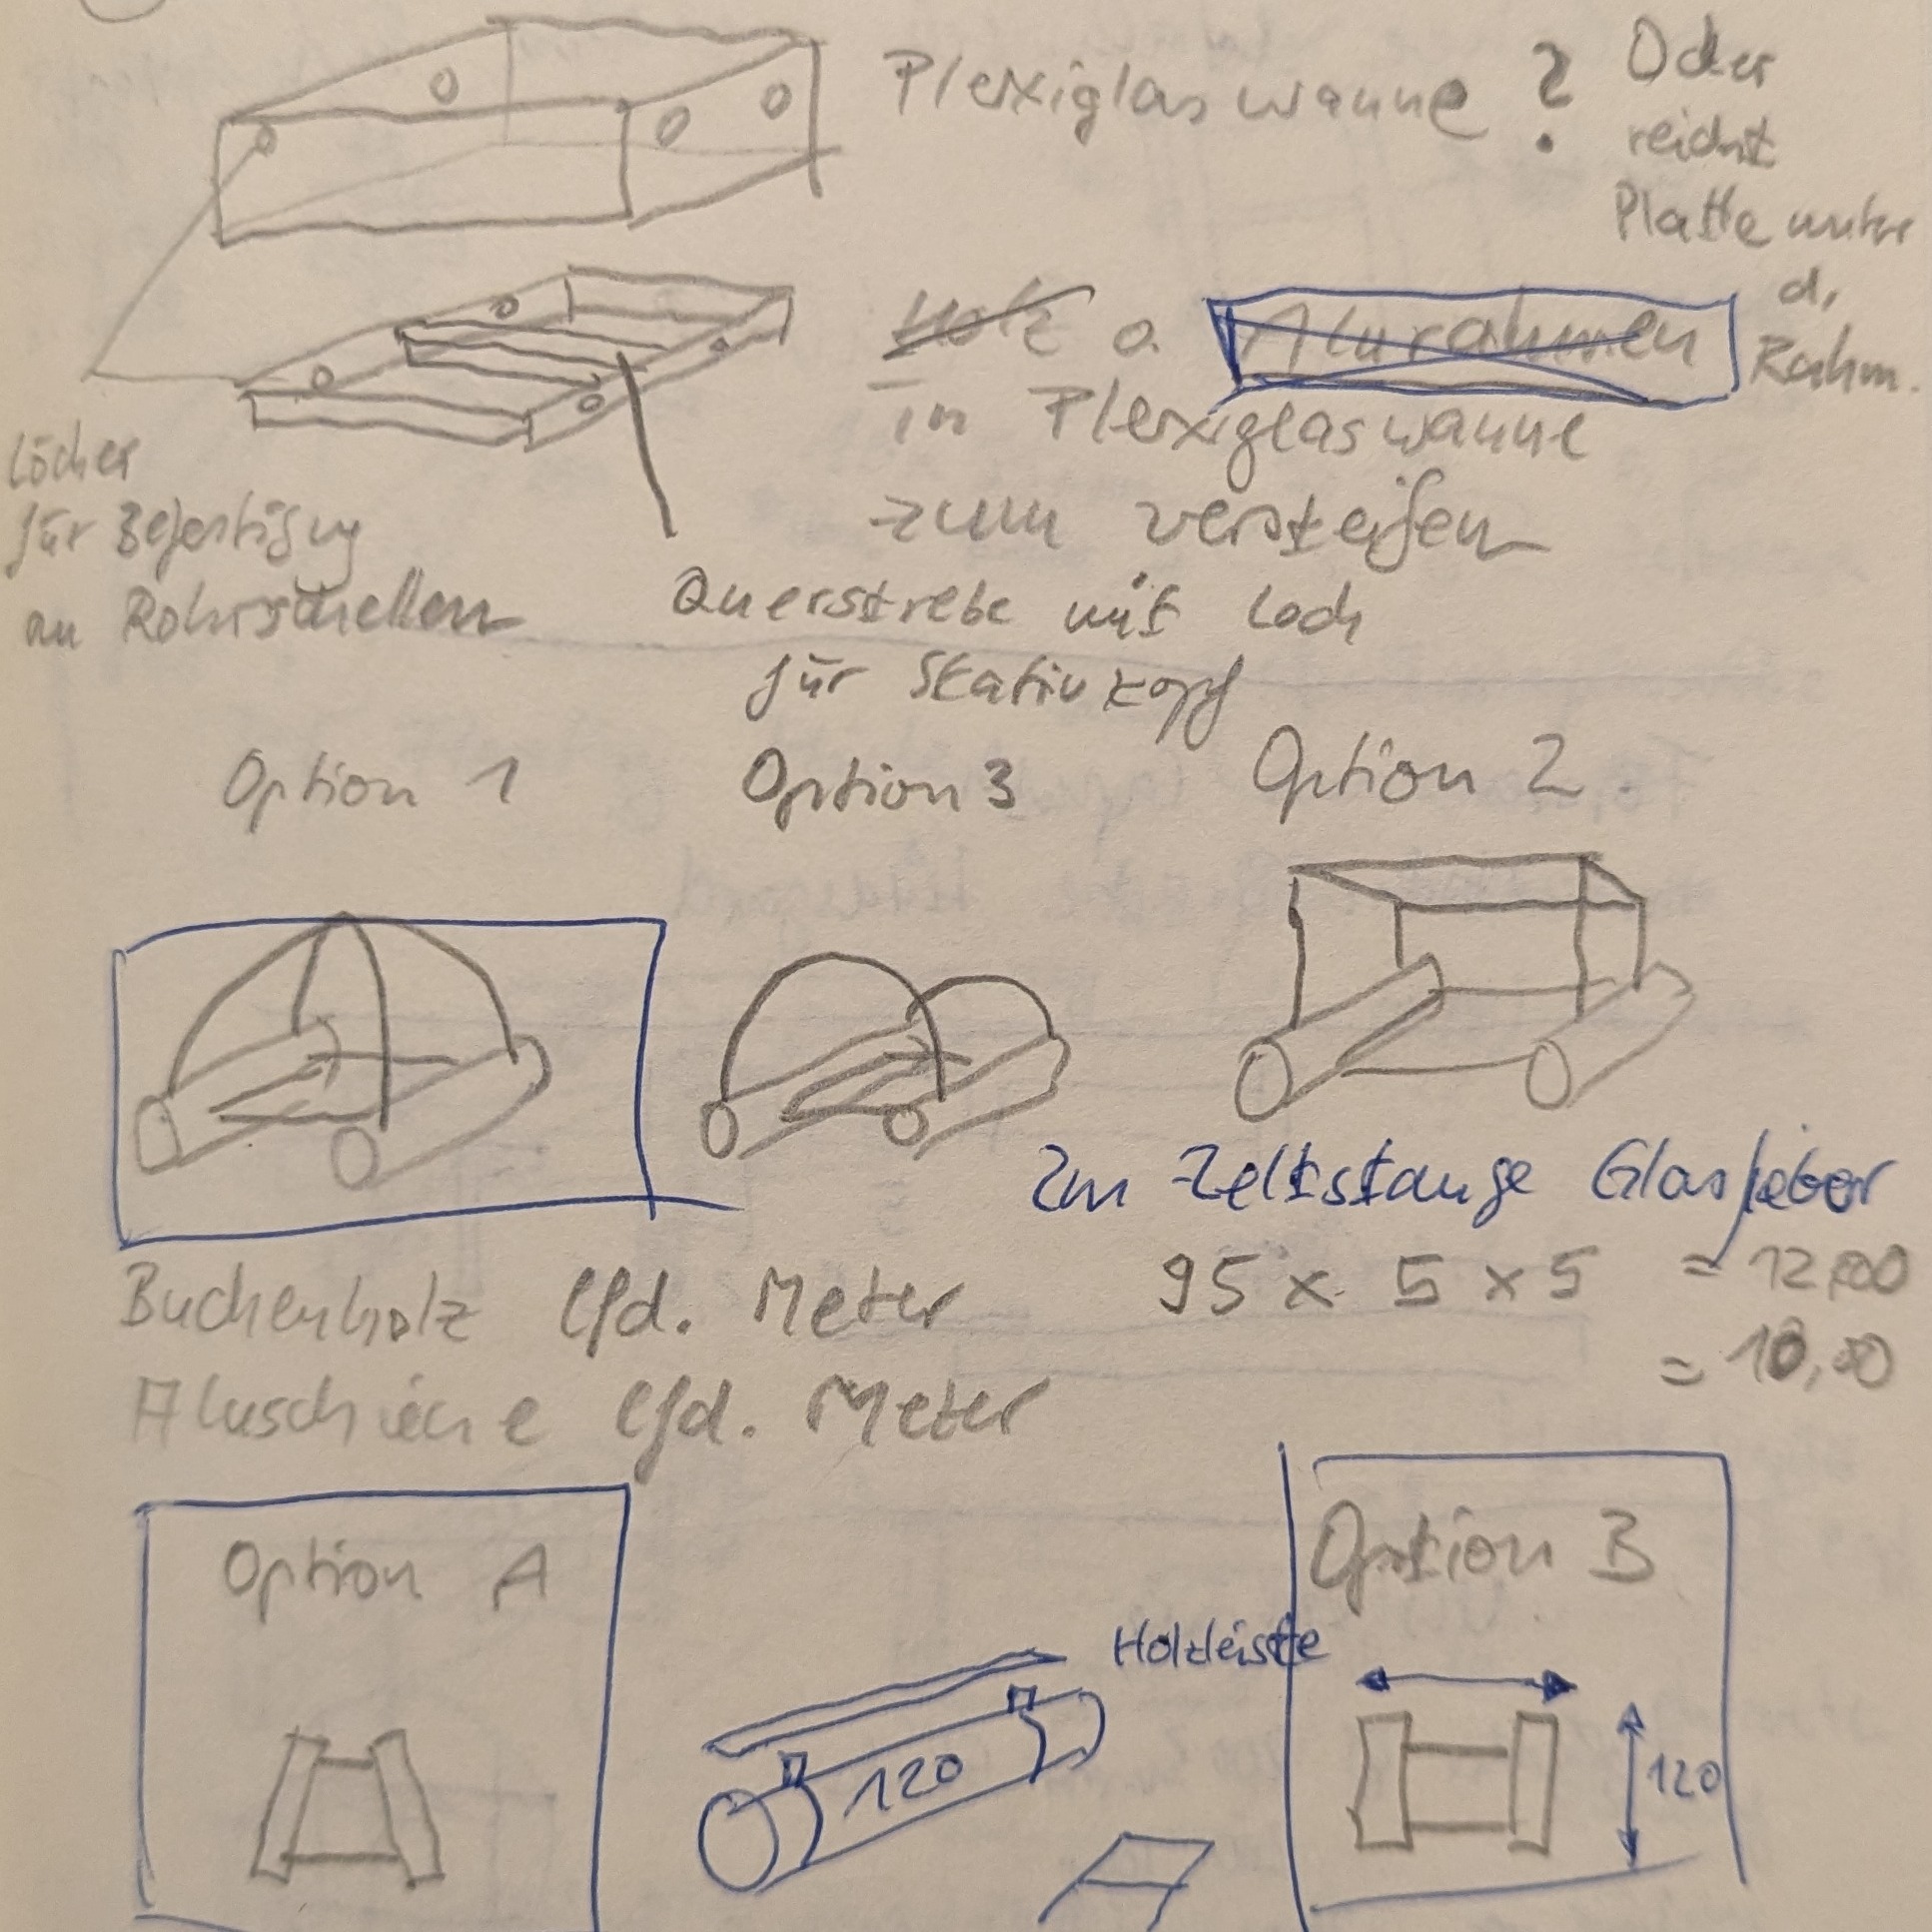 Plexiglaswanne ?
Oder
reicht
Platte unter
d.
Rahm.
Holz o. Alurahmen
in Plexiglaswanne
zum versteifen
Löcher
für Befestigung
an Rohrschellen
Querstrebe mit Loch
für Stativkopf
Option 1 Option 3 Option 2
2m Zeltstange Glasfieber
Buchenholz lfd. Meter 95 x 5 x 5 = 12,00
= 10,00
Aluschiene lfd. Meter
Option A
Option B
Holzleiste
120
120